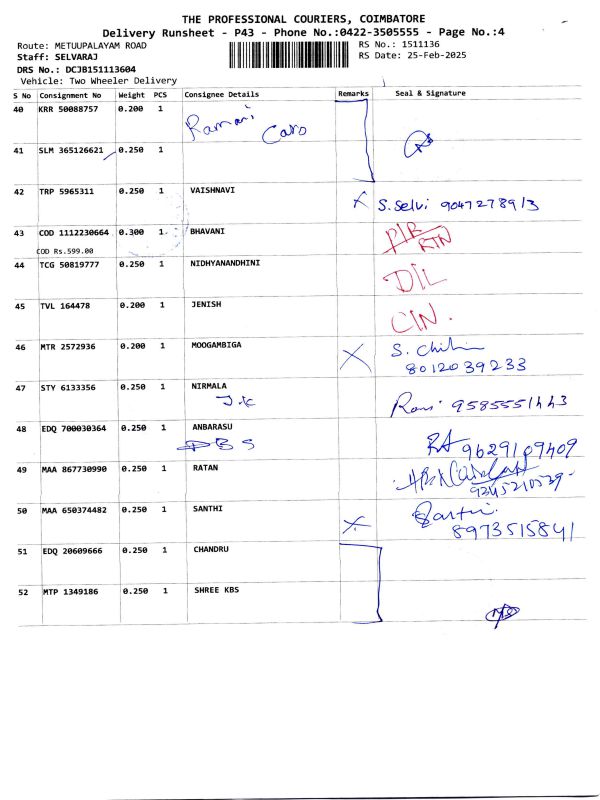 THE PROFESSIONAL COURIERS, COIMBATORE
Delivery Runsheet - P43 - Phone No.:0422-3505555 - Page No.:4
Route: METUUPALAYAM ROAD
RS No.: 1511136
Staff: SELVARAJ
RS Date: 25-Feb-2025
DRS No.: DCJB151113604
Vehicle: Two Wheeler Delivery
S No Consignment No Weight PCS Consignee Details Remarks Seal & Signature
40 KRR 50088757 0.200 1
Ramani Caro
41 SLM 365126621 0.250 1
42 TRP 5965311 0.250 1 VAISHNAVI X S.Selvi 9047278913
43 COD 1112230664 0.300 1 BHAVANI P/R RTN
COD Rs.599.00
44 TCG 50819777 0.250 1 NIDHYANANDHINI D/L
45 TVL 164478 0.200 1 JENISH C/N.
46 MTR 2572936 0.200 1 MOOGAMBIGA X S.
8012039233
47 STY 6133356 0.250 1 NIRMALA
J.K Rani 9585551443
48 EDQ 700030364 0.250 1 ANBARASU
DBS 9629109409
49 MAA 867730990 0.250 1 RATAN
9345210539-
50 MAA 650374482 0.250 1 SANTHI X
8973515841
51 EDQ 20609666 0.250 1 CHANDRU
52 MTP 1349186 0.250 1 SHREE KBS